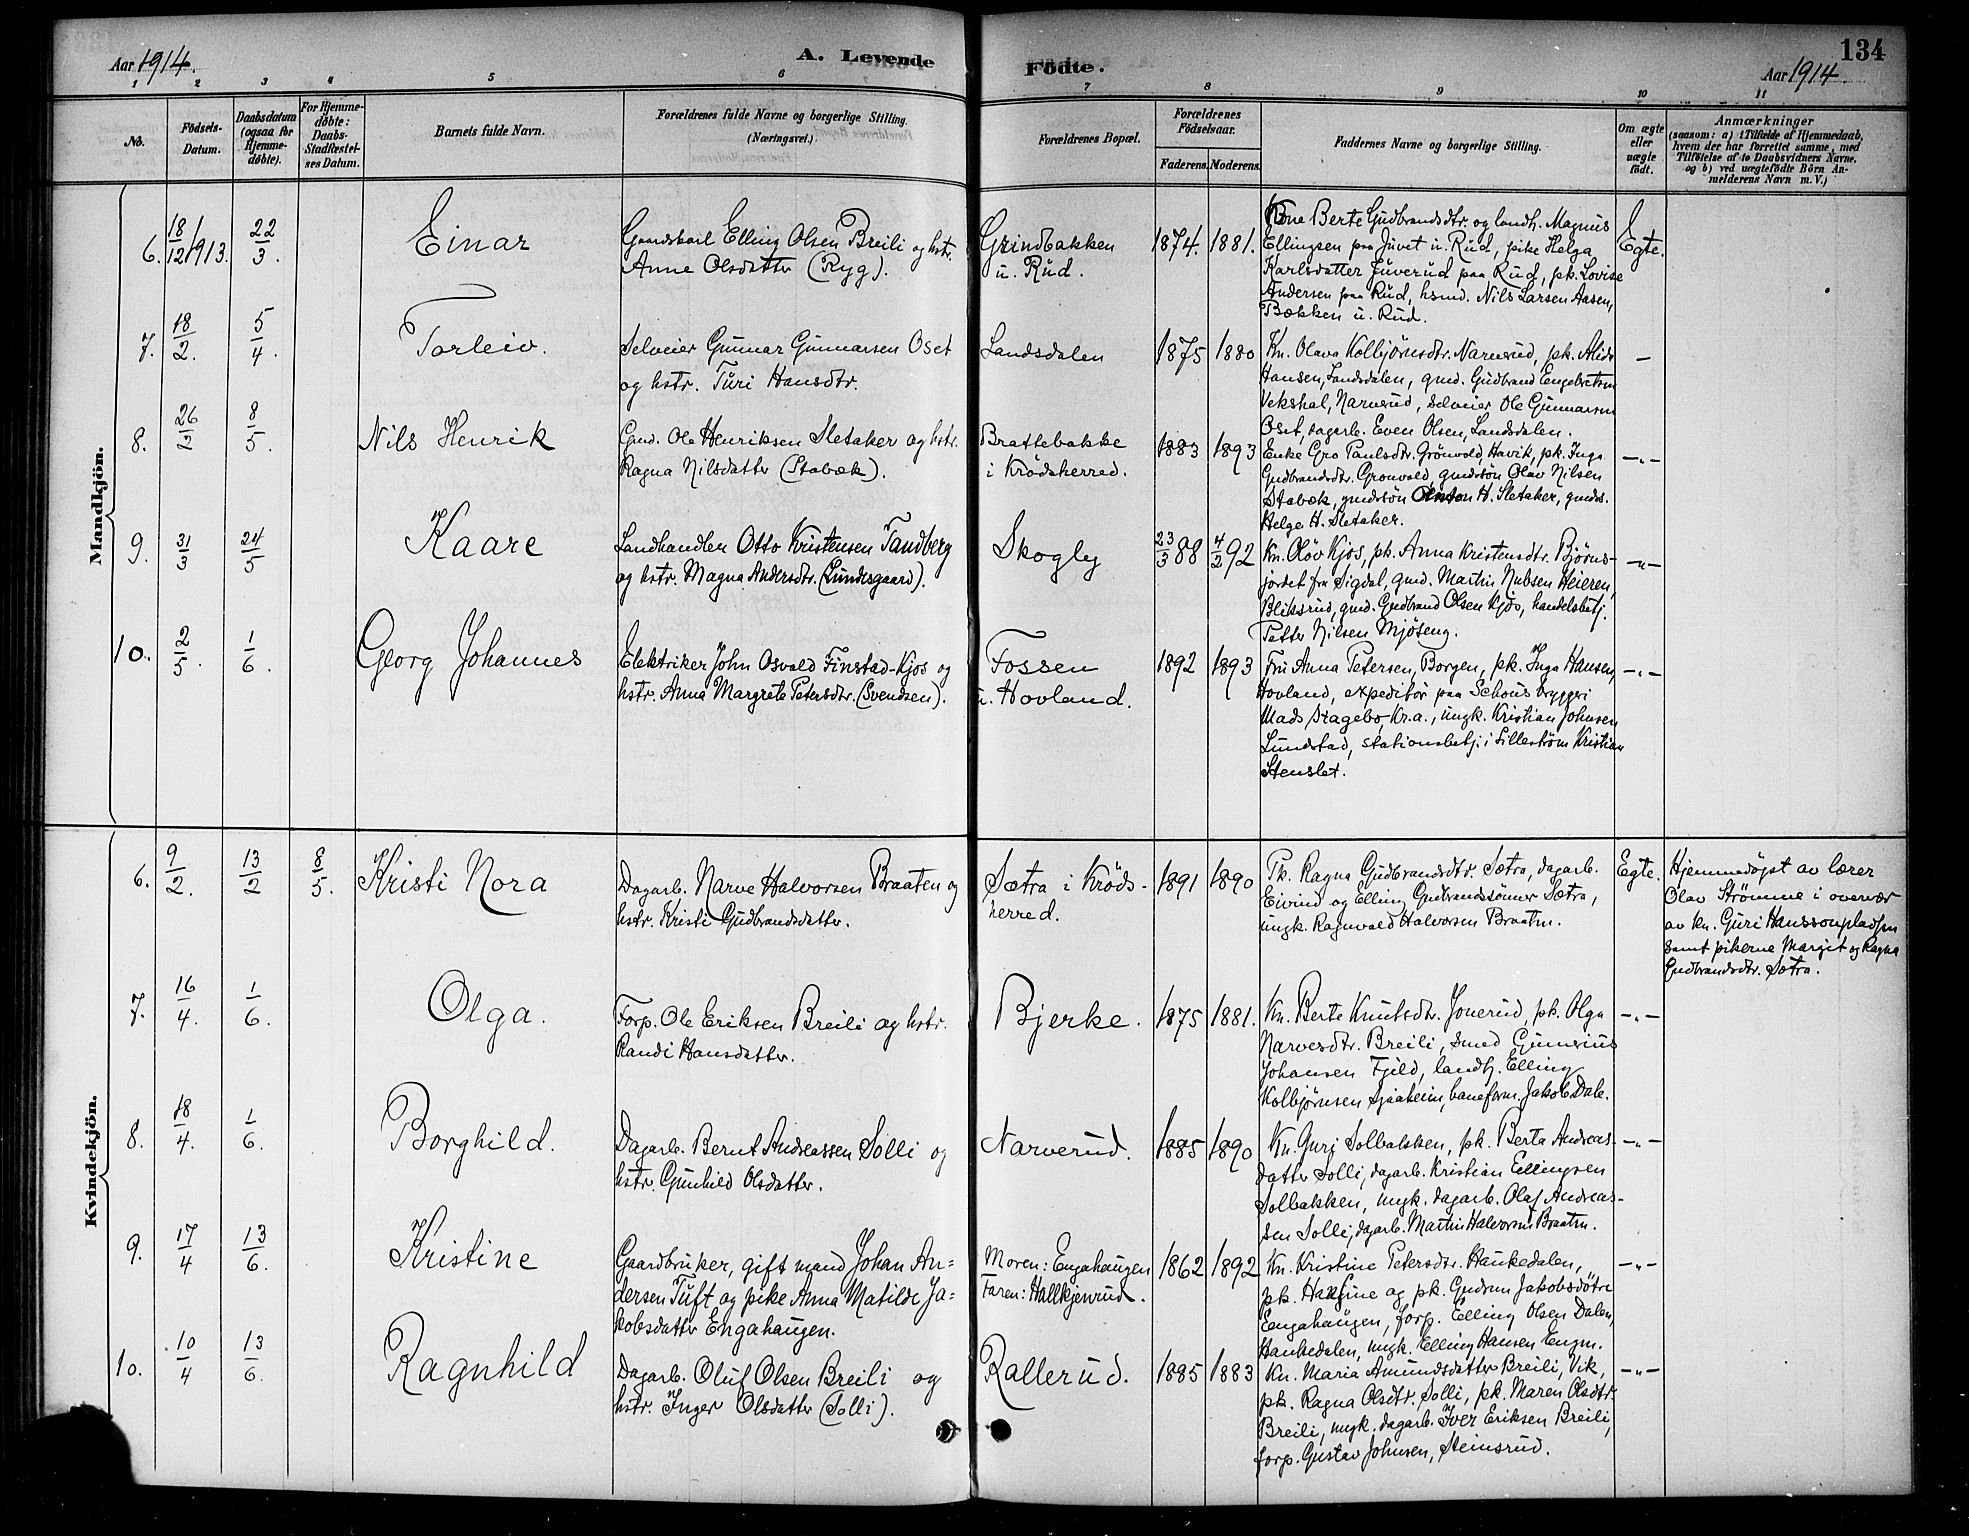 Aar 1914.
A. Levende
Fødte.
134
Aar 1914.
1 2 3 4 5 6 7 8 9 10 11
No.
Fødsels-
Datum.
Daabsdatum
(ogsaa for
Hjemme-
døbte).
For Hjemme-
døbte:
Daabs-
Stadfæstel-
ses Datum.
Barnets fulde Navn.
Forældrenes fulde Navne og borgerlige Stilling.
(Næringsvei.)
Forældrenes Bopæl.
Forældrenes
Fødselsaar.
Faderens. Moderens.
Faddernes Navne og borgerlige Stilling.
Om ægte
eller
uægte
født.
Anmærkninger
(saasom: a) i Tilfælde af Hjemmedaab,
hvem der har forrettet samme, med
Tilføielse af to Daabsvidners Navne,
og b) ved uægtefødte Børn An-
melderens Navn m. V.)
Mandkjøn.
6. 18/12 1913. 22/3. Einar
Gaardskarl Elling Olsen Breili og hstr.
Anne Olsdatter (Ryg).
Grindbakken
u. Rud.
1874. 1881.
Kone Berte Gudbrandsdtr. og landh. Magnus
Ellingsen paa Juvet u. Rud, pike Helga
Karlsdatter Juverud paa Rud, pk. Lovise
Andersen paa Rud, hsmd. Nils Larsen Aasen,
Bækken u. Rud.
Egte.
7. 18/2. 5/4. Torleiv.
Selveier Gunnar Gunnarsen Oset
og hstr. Turi Hansdtr.
Landsdalen
1875 1880
Kn. Olava Kolbjørnsdtr. Narverud, pk. Alide
Hansen, Landsdalen, gmd. Gudbrand Engebretsen
Vekshal, Narverud, selveier Ole Gunnarsen
Oset, dagarb. Even Olsen, Landsdalen.
—
8. 26/2 8/5. Nils Henrik
Gmd. Ole Henriksen Sletaker og hstr.
Ragna Nilsdatter (Stabæk).
Brattebakke
i Krødsherred.
1883 1893
Enke Gro Paulsdtr. Grönvold, Havik, pk. Inga
Gudbrandsdtr. Grönvold, gmdssön Olav Nilsen
Stabæk, gmdssön Anton H. Sletaker, gmdss.
Helge H. Sletaker.
—"—
9. 31/3 24/5 Kaare
Landhandler Otto Kristensen Tandberg
og hstr. Magna Andersdtr. (Lundesgaard).
Skogly
23/3 88 4/2 92
Kn. Olöv Kjøs, pk. Anna Kristensdtr. Bjørns-
jordet fra Sigdal, gmd. Martin Nubsen Heieren,
Bliksrud, gmd. Gudbrand Olsen Kjøs, handelsbetj.
Petter Nilsen Mjøseng.
—"—
10. 2/5. 1/6. Georg Johannes
Elektriker John Osvald Finstad-Kjos og
hstr. Anna Margrete Petersdtr. (Svendsen).
Fossen
u. Hovland.
1892 1893
Fru Anna Petersen, Borgen, pk. Inga Hansen,
Hovland, expeditör paa Schous bryggeri
Mads Stagebo, Kr.a., ungk. Kristian Johnsen
Lundstad, stationsbetj. i Lilleström Kristian
Stenslet.
—"—
Kvindekjøn.
6. 9/2. 13/2 8/5. Kristi Nora
Dagarb. Narve Halvorsen Braaten og
hstr. Kristi Gudbrandsdatter.
Sætra i Kröds-
herred.
1891 1890
Pk. Ragna Gudbrandsdtr. Sætra, dagarb.
Eivind og Elling Gudbrandssönner Sætra,
ungk. Ragnvald Halvorsen Braaten.
Egte.
Hjemmedöpt av lærer
Olav Strömme i overvær
av kn. Guri Hanssonpladsen
samt pikerne Margit og Ragna
Gudbrandsdtr. Sætra.
7. 16/4. 1/6. Olga.
Forp. Ole Eriksen Breili og hstr.
Randi Hansdatter.
Bjerke.
1875 1881.
Kn. Berte Knutsdtr. Jonerud, pk. Olga
Narvesdtr. Breili, smed Gunerius
Johansen Fjeld, landh. Elling
Kolbjørnsen Sjaaheim, baneform. Jakob Dale.
—"—
8. 18/4. 1/6. Borghild.
Dagarb. Bernt Andreassen Solli og
hstr. Gunhild Olsdatter.
Narverud.
1885 1890
Kn. Guri Solbakken, pk. Berta Andreas-
datter Solli, dagarb. Kristian Ellingsen
Solbakken, ungk. dagarb. Olaf Andreas-
sen Solli, dagarb. Martin Halvorsen Braaten.
—"—
9. 17/4 13/6. Kristine
Gaardbruker, gift mand Johan An=
dersen Tuft og pike Anna Matilde Ja=
kobsdatter Engahaugen.
Moren: Engahaugen
Faren: Hallkjenrud.
1862 1892
Kn. Kristine Petersdtr. Haukedalen,
pk. Hansine og pk. Gudrun Jakobsdötre
Engahaugen, forp. Elling Olsen Dalen,
Haukedalen, ungk. Elling Hansen Engen.
—"—
10. 10/4 13/6. Ragnhild
Dagarb. Oluf Olsen Breili og
hstr. Inger Olsdatter (Solli).
Rallerud.
1885 1883
Kn. Maria Amundsdatter Breili, Vik,
pk. Ragna Olsdtr. Solli, pk. Maren Olsdtr.
Breili, ungk. dagarb. Iver Eriksen Breili,
forp. Gustav Johnsen, Steinsrud.
—"—